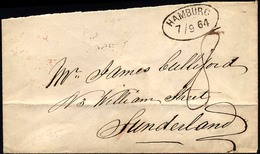 HAMBURG
7/9 64
Mr. James Culliford
13 William Street
Sunderland